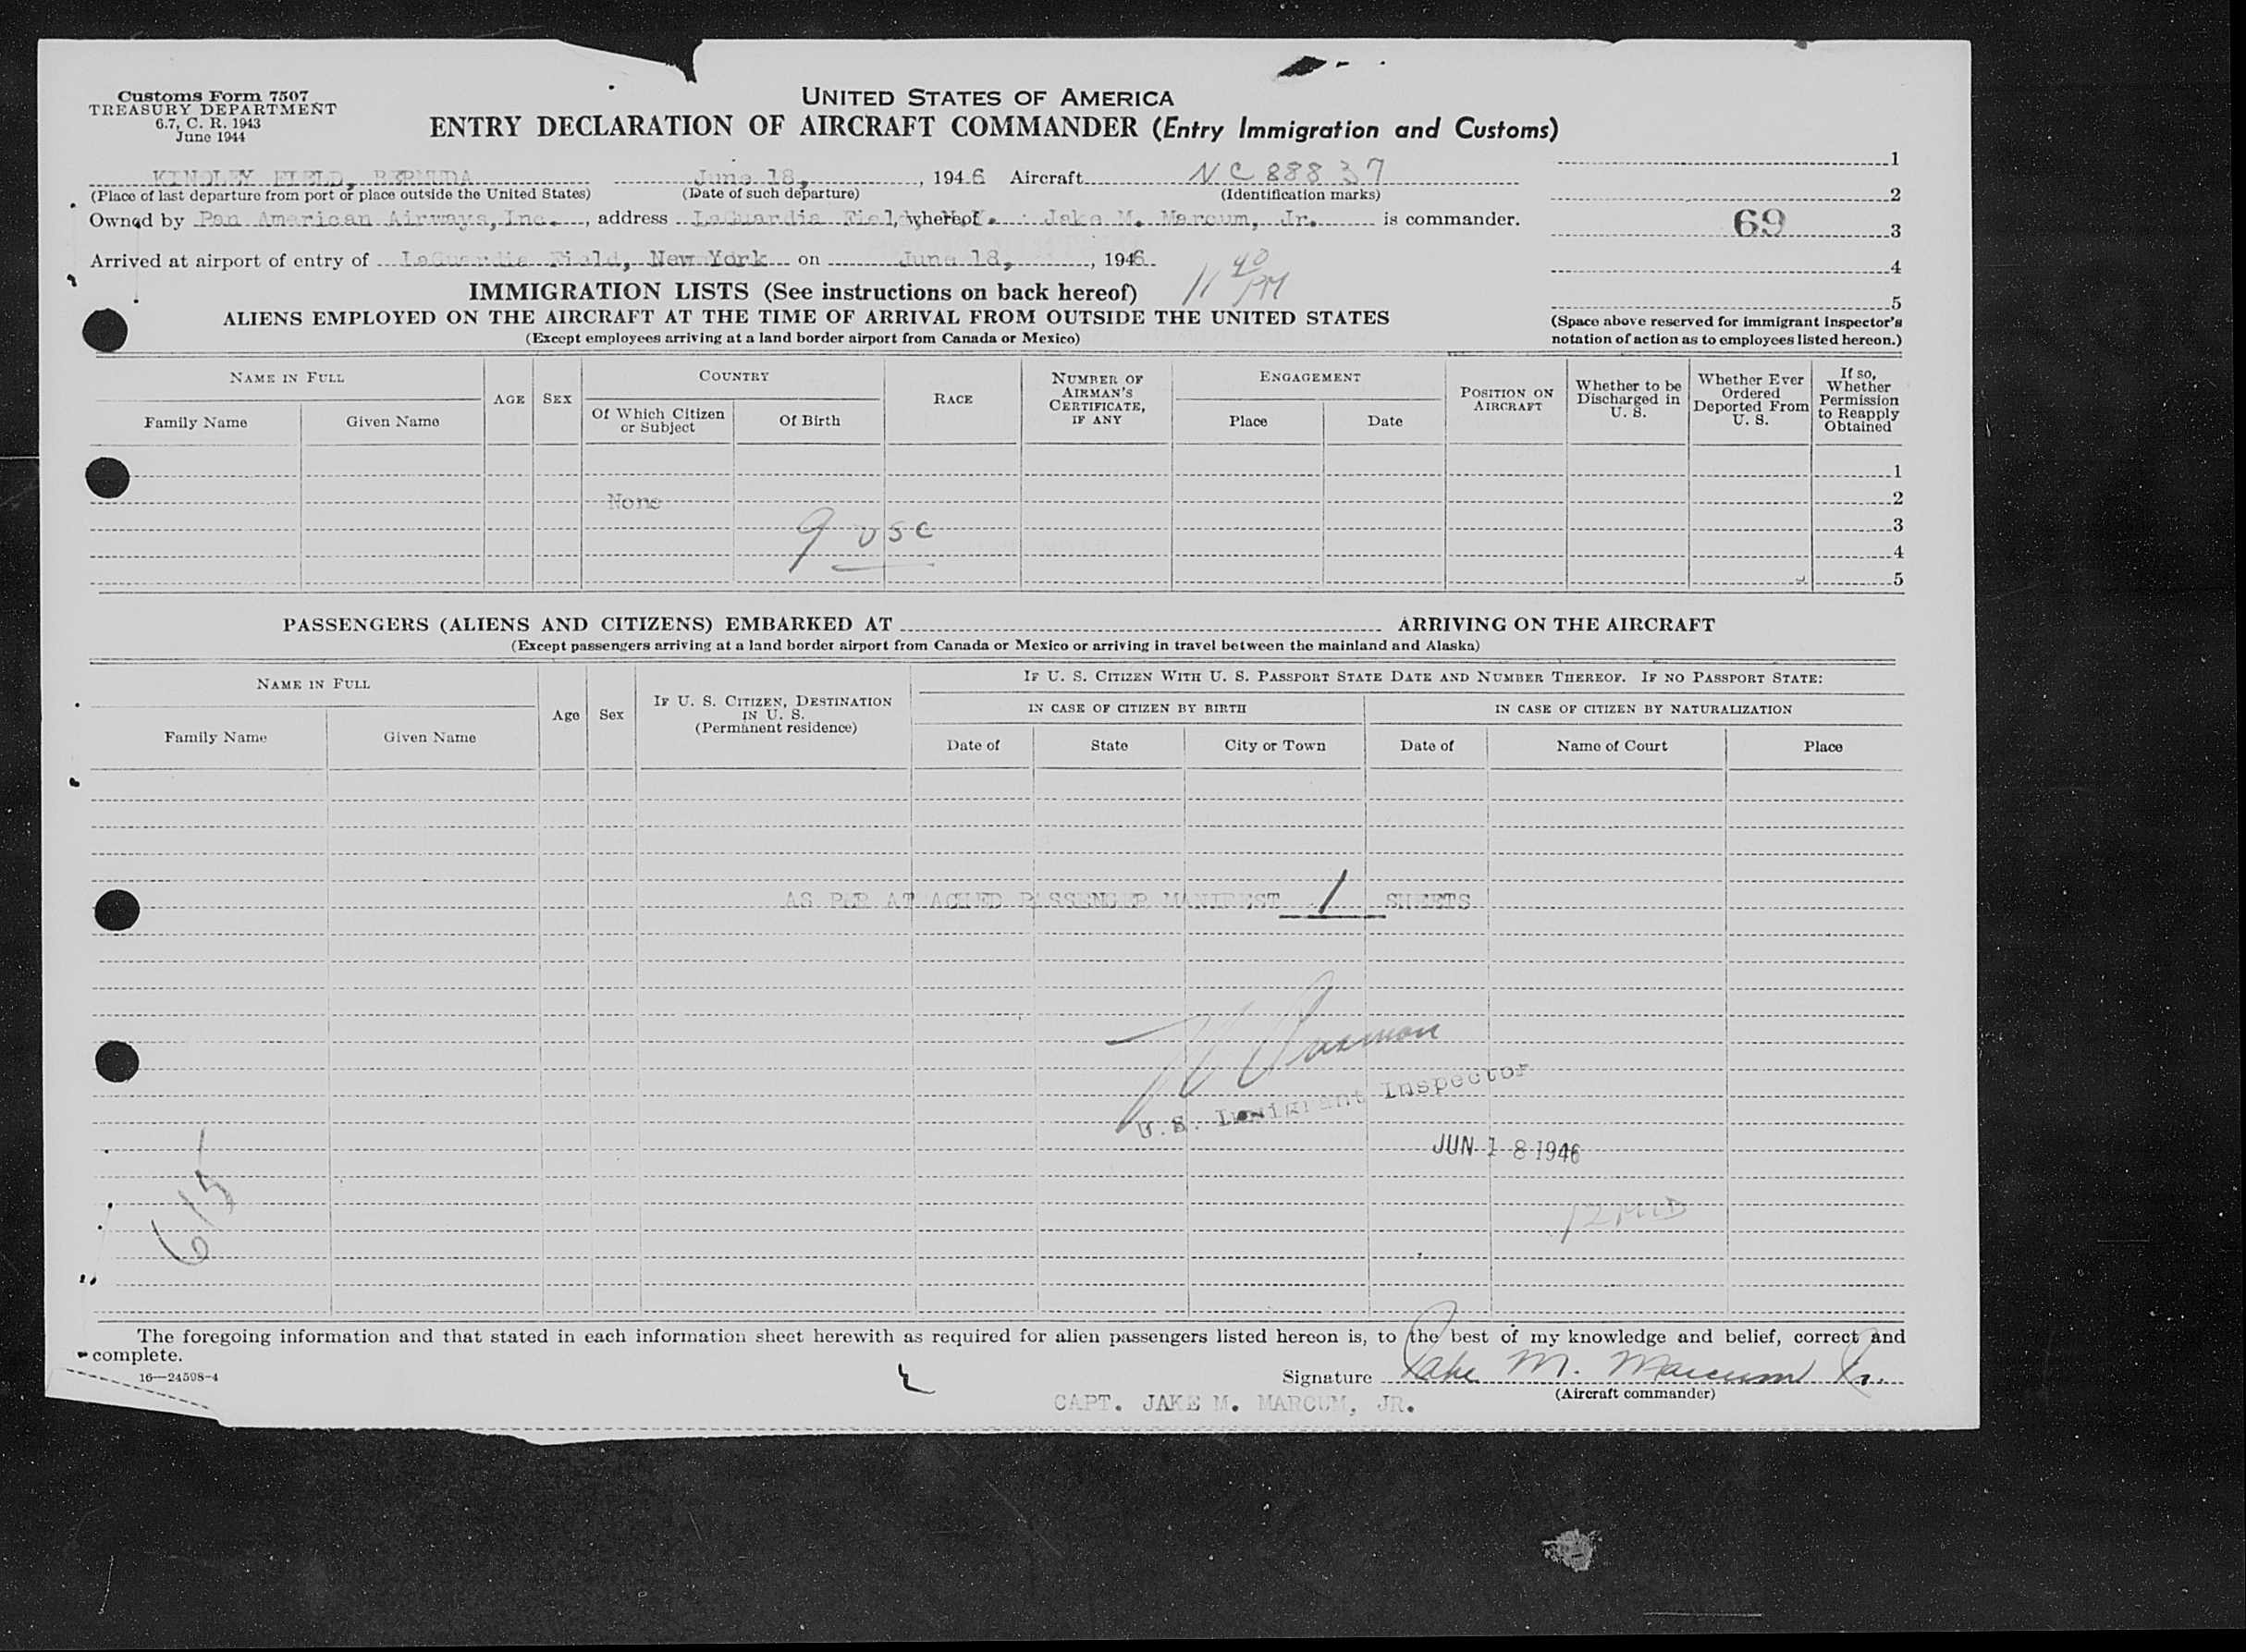 Customs Form 7507
TREASURY DEPARTMENT
6.7, C. R. 1943
June 1944
UNITED STATES OF AMERICA
ENTRY DECLARATION OF AIRCRAFT COMMANDER (Entry Immigration and Customs)
KINDLEY FIELD, BERMUDA June 18, , 1946 Aircraft NC 88837
(Place of last departure from port or place outside the United States) (Date of such departure) (Identification marks)
Owned by Pan American Airways, Inc. , address LaGuardia Field, whereof Jake M. Marcum, Jr. is commander.
Arrived at airport of entry of LaGuardia Field, New York on June 18, , 1946
11 40 PM
1
2
69 3
4
5
(Space above reserved for immigrant inspector's
notation of action as to employees listed hereon.)
IMMIGRATION LISTS (See instructions on back hereof)
ALIENS EMPLOYED ON THE AIRCRAFT AT THE TIME OF ARRIVAL FROM OUTSIDE THE UNITED STATES
(Except employees arriving at a land border airport from Canada or Mexico)
NAME IN FULL
Family Name Given Name
AGE SEX
COUNTRY
Of Which Citizen or Subject Of Birth
RACE
NUMBER OF AIRMAN'S CERTIFICATE, IF ANY
ENGAGEMENT
Place Date
POSITION ON AIRCRAFT
Whether to be Discharged in U. S.
Whether Ever Ordered Deported From U. S.
If so, Whether Permission to Reapply Obtained
1
None 2
9 USC 3
4
5
PASSENGERS (ALIENS AND CITIZENS) EMBARKED AT ARRIVING ON THE AIRCRAFT
(Except passengers arriving at a land border airport from Canada or Mexico or arriving in travel between the mainland and Alaska)
NAME IN FULL
Family Name Given Name
Age Sex
IF U. S. CITIZEN, DESTINATION IN U. S.
(Permanent residence)
IF U. S. CITIZEN WITH U. S. PASSPORT STATE DATE AND NUMBER THEREOF. IF NO PASSPORT STATE:
IN CASE OF CITIZEN BY BIRTH IN CASE OF CITIZEN BY NATURALIZATION
Date of State City or Town Date of Name of Court Place
AS PER ATTACHED PASSENGER MANIFEST 1 SHEETS
U.S. Immigrant Inspector
JUN 18 1946
12 MID
615
The foregoing information and that stated in each information sheet herewith as required for alien passengers listed hereon is, to the best of my knowledge and belief, correct and
complete.
16—24598-4
Signature Jake M. Marcum Jr.
(Aircraft commander)
CAPT. JAKE M. MARCUM, JR.